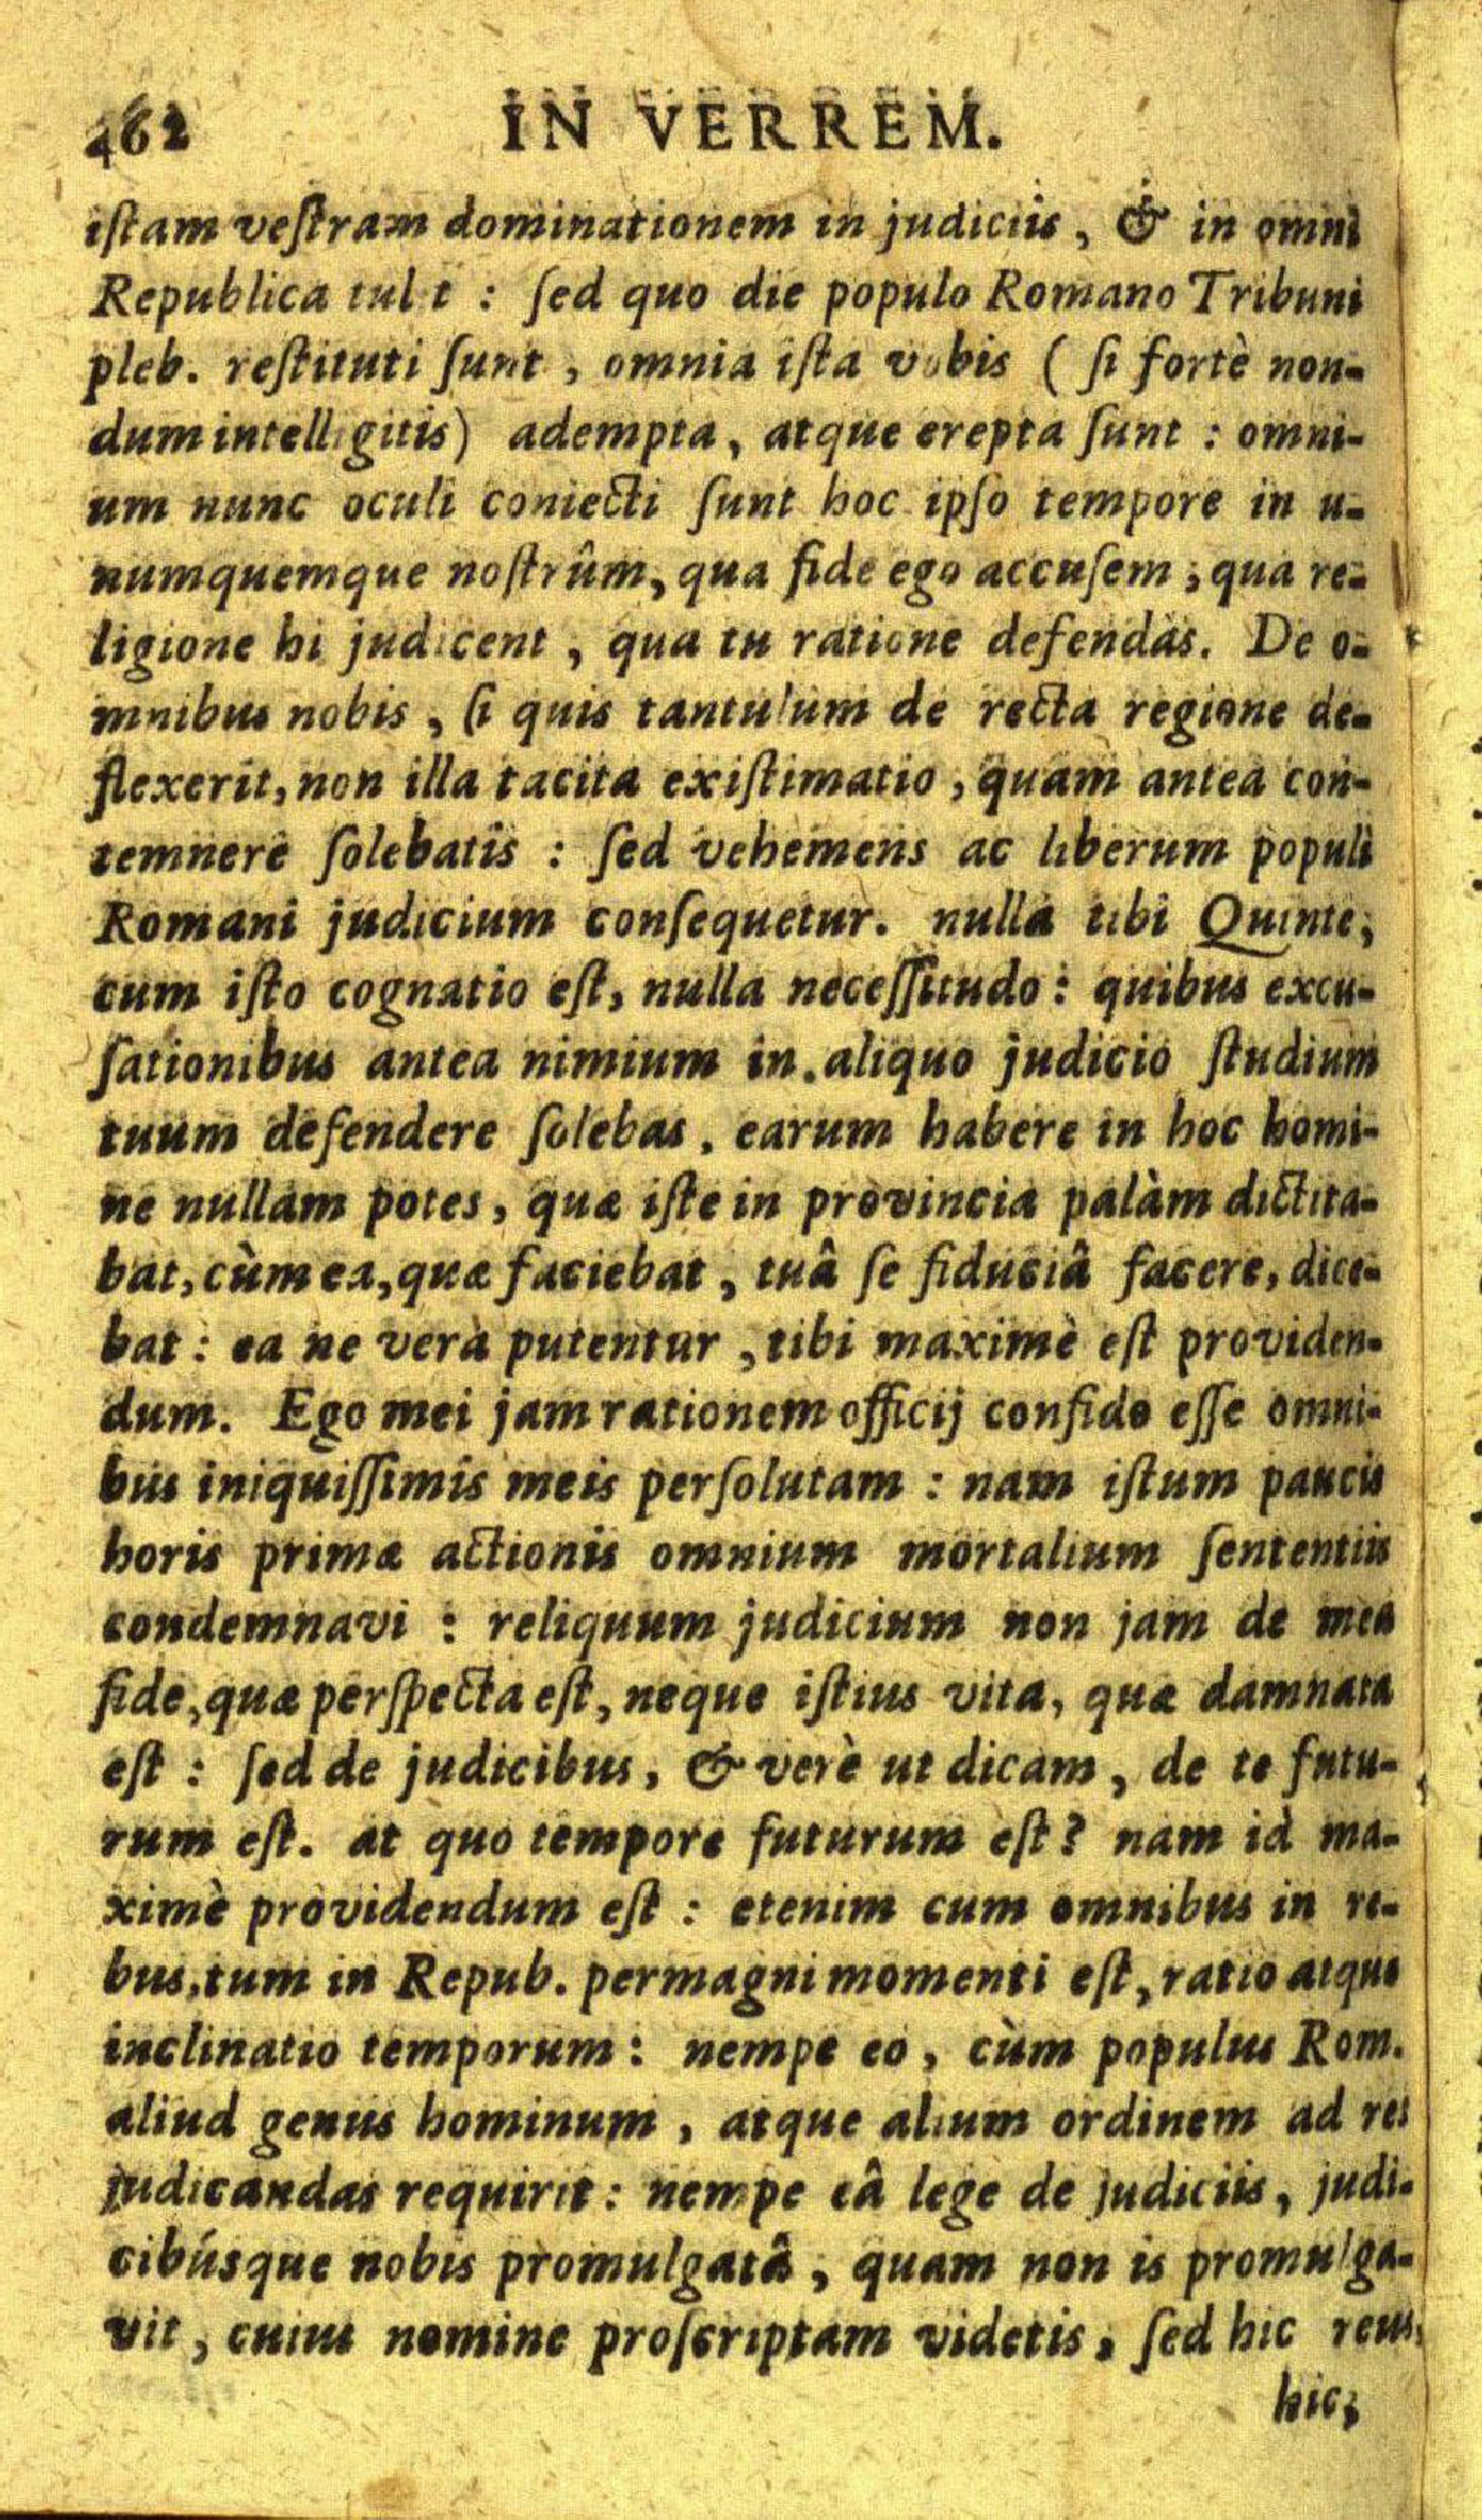 462 IN VERREM.
iſtam veſtram dominationem in judiciis, & in omni
Republica tulit : ſed quo die populo Romano Tribuni
pleb. reſtituti ſunt, omnia iſta vobis ( ſi fortè non-
dum intelligitis) adempta, atque erepta ſunt : omni-
um nunc oculi coniecti ſunt hoc ipſo tempore in u-
numquemque noſtrûm, qua fide ego accuſem; qua re-
ligione hi judicent, qua tu ratione defendas. De o-
mnibus nobis, ſi quis tantulum de recta regione de-
flexerit, non illa tacita exiſtimatio, quam antea con-
temnere ſolebatis : ſed vehemens ac liberum populi
Romani judicium conſequetur. nulla tibi Quinte,
cum iſto cognatio eſt, nulla neceſſitudo : quibus excu-
ſationibus antea nimium in aliquo judicio ſtudium
tuum defendere ſolebas, earum habere in hoc homi-
ne nullam potes, quæ iſte in provincia palàm dictita-
bat, cùm ea, quæ faciebat, tuâ ſe fiduciâ facere, dice-
bat : ea ne vera putentur, tibi maximè eſt providen-
dum. Ego mei jam rationem officij confido eſſe omni-
bus iniquiſſimis meis perſolutam : nam iſtum paucis
horis primæ actionis omnium mortalium ſententiis
condemnavi : reliquum judicium non jam de mea
fide, quæ perſpecta eſt, neque iſtius vita, quæ damnata
eſt : ſed de judicibus, & verè ut dicam, de te futu-
rum eſt. at quo tempore futurum eſt? nam id ma-
ximè providendum eſt : etenim cum omnibus in re-
bus, tum in Repub. permagni momenti eſt, ratio atque
inclinatio temporum : nempe eo, cùm populus Rom.
aliud genus hominum, atque alium ordinem ad res
judicandas requirit : nempe eâ lege de judiciis, judi-
cibúsque nobis promulgatâ, quam non is promulga-
vit, cuius nomine proſcriptam videtis, ſed hic reus,
hic,